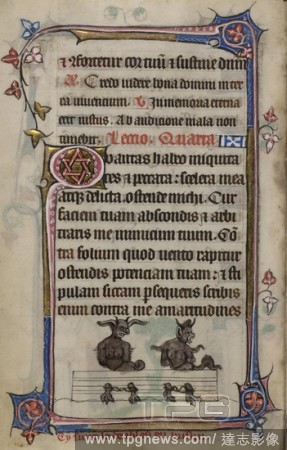 & confortetur cor tuum & sustine dnm
R. Credo videre bona domini in ter
ra viuentium. V. In memoria eterna
erit iustus. Ab auditione mala non
timebit. Lectio. Quarta
Quantas habeo iniquita
tes & peccata: scelera mea
atq; delicta. ostende michi. Cur
faciem tuam abscondis & arbi
traris me inimicum tuum. Con
tra folium quod vento rapitur
ostendis potenciam tuam: & sti
pulam siccam persequeris scribis
enim contra me amaritudines
TPG
www.tpgnews.com/ 達志影像